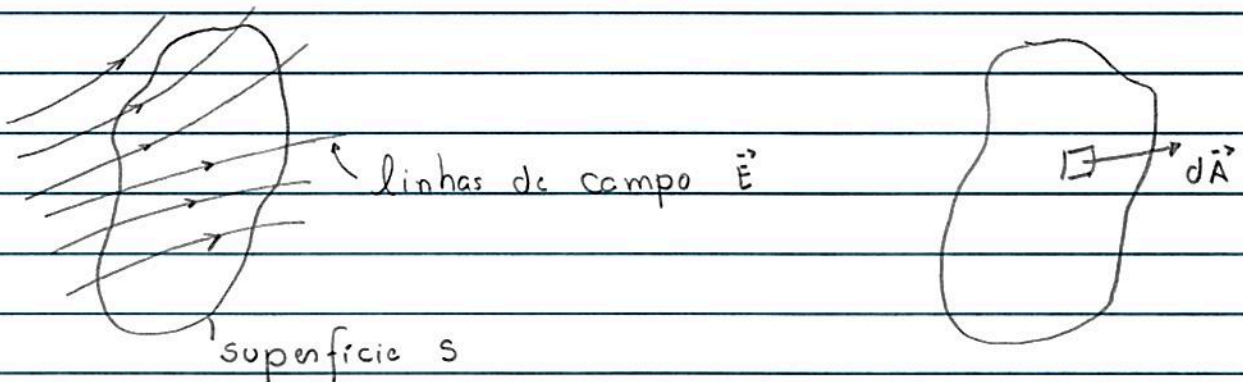 linhas de campo E⃗
dA⃗
superfície S